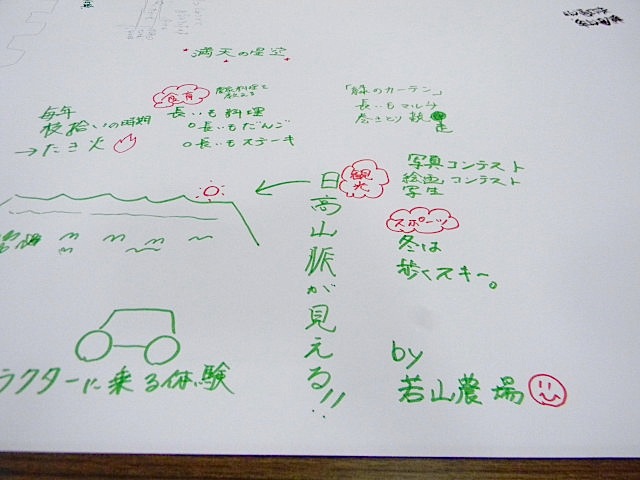 満天の星空
食育
農家料理を
教える
長いも料理
○長いもだんご
○長いもステーキ
毎年
枝拾いの時期
→たき火
「緑のカーテン」
長いもマルチ
巻きとり競走
観光
写真コンテスト
絵画コンテスト
写生
日高山脈が見える!!
スポーツ
冬は
歩くスキー。
ラクターに乗る体験
by
若山農場